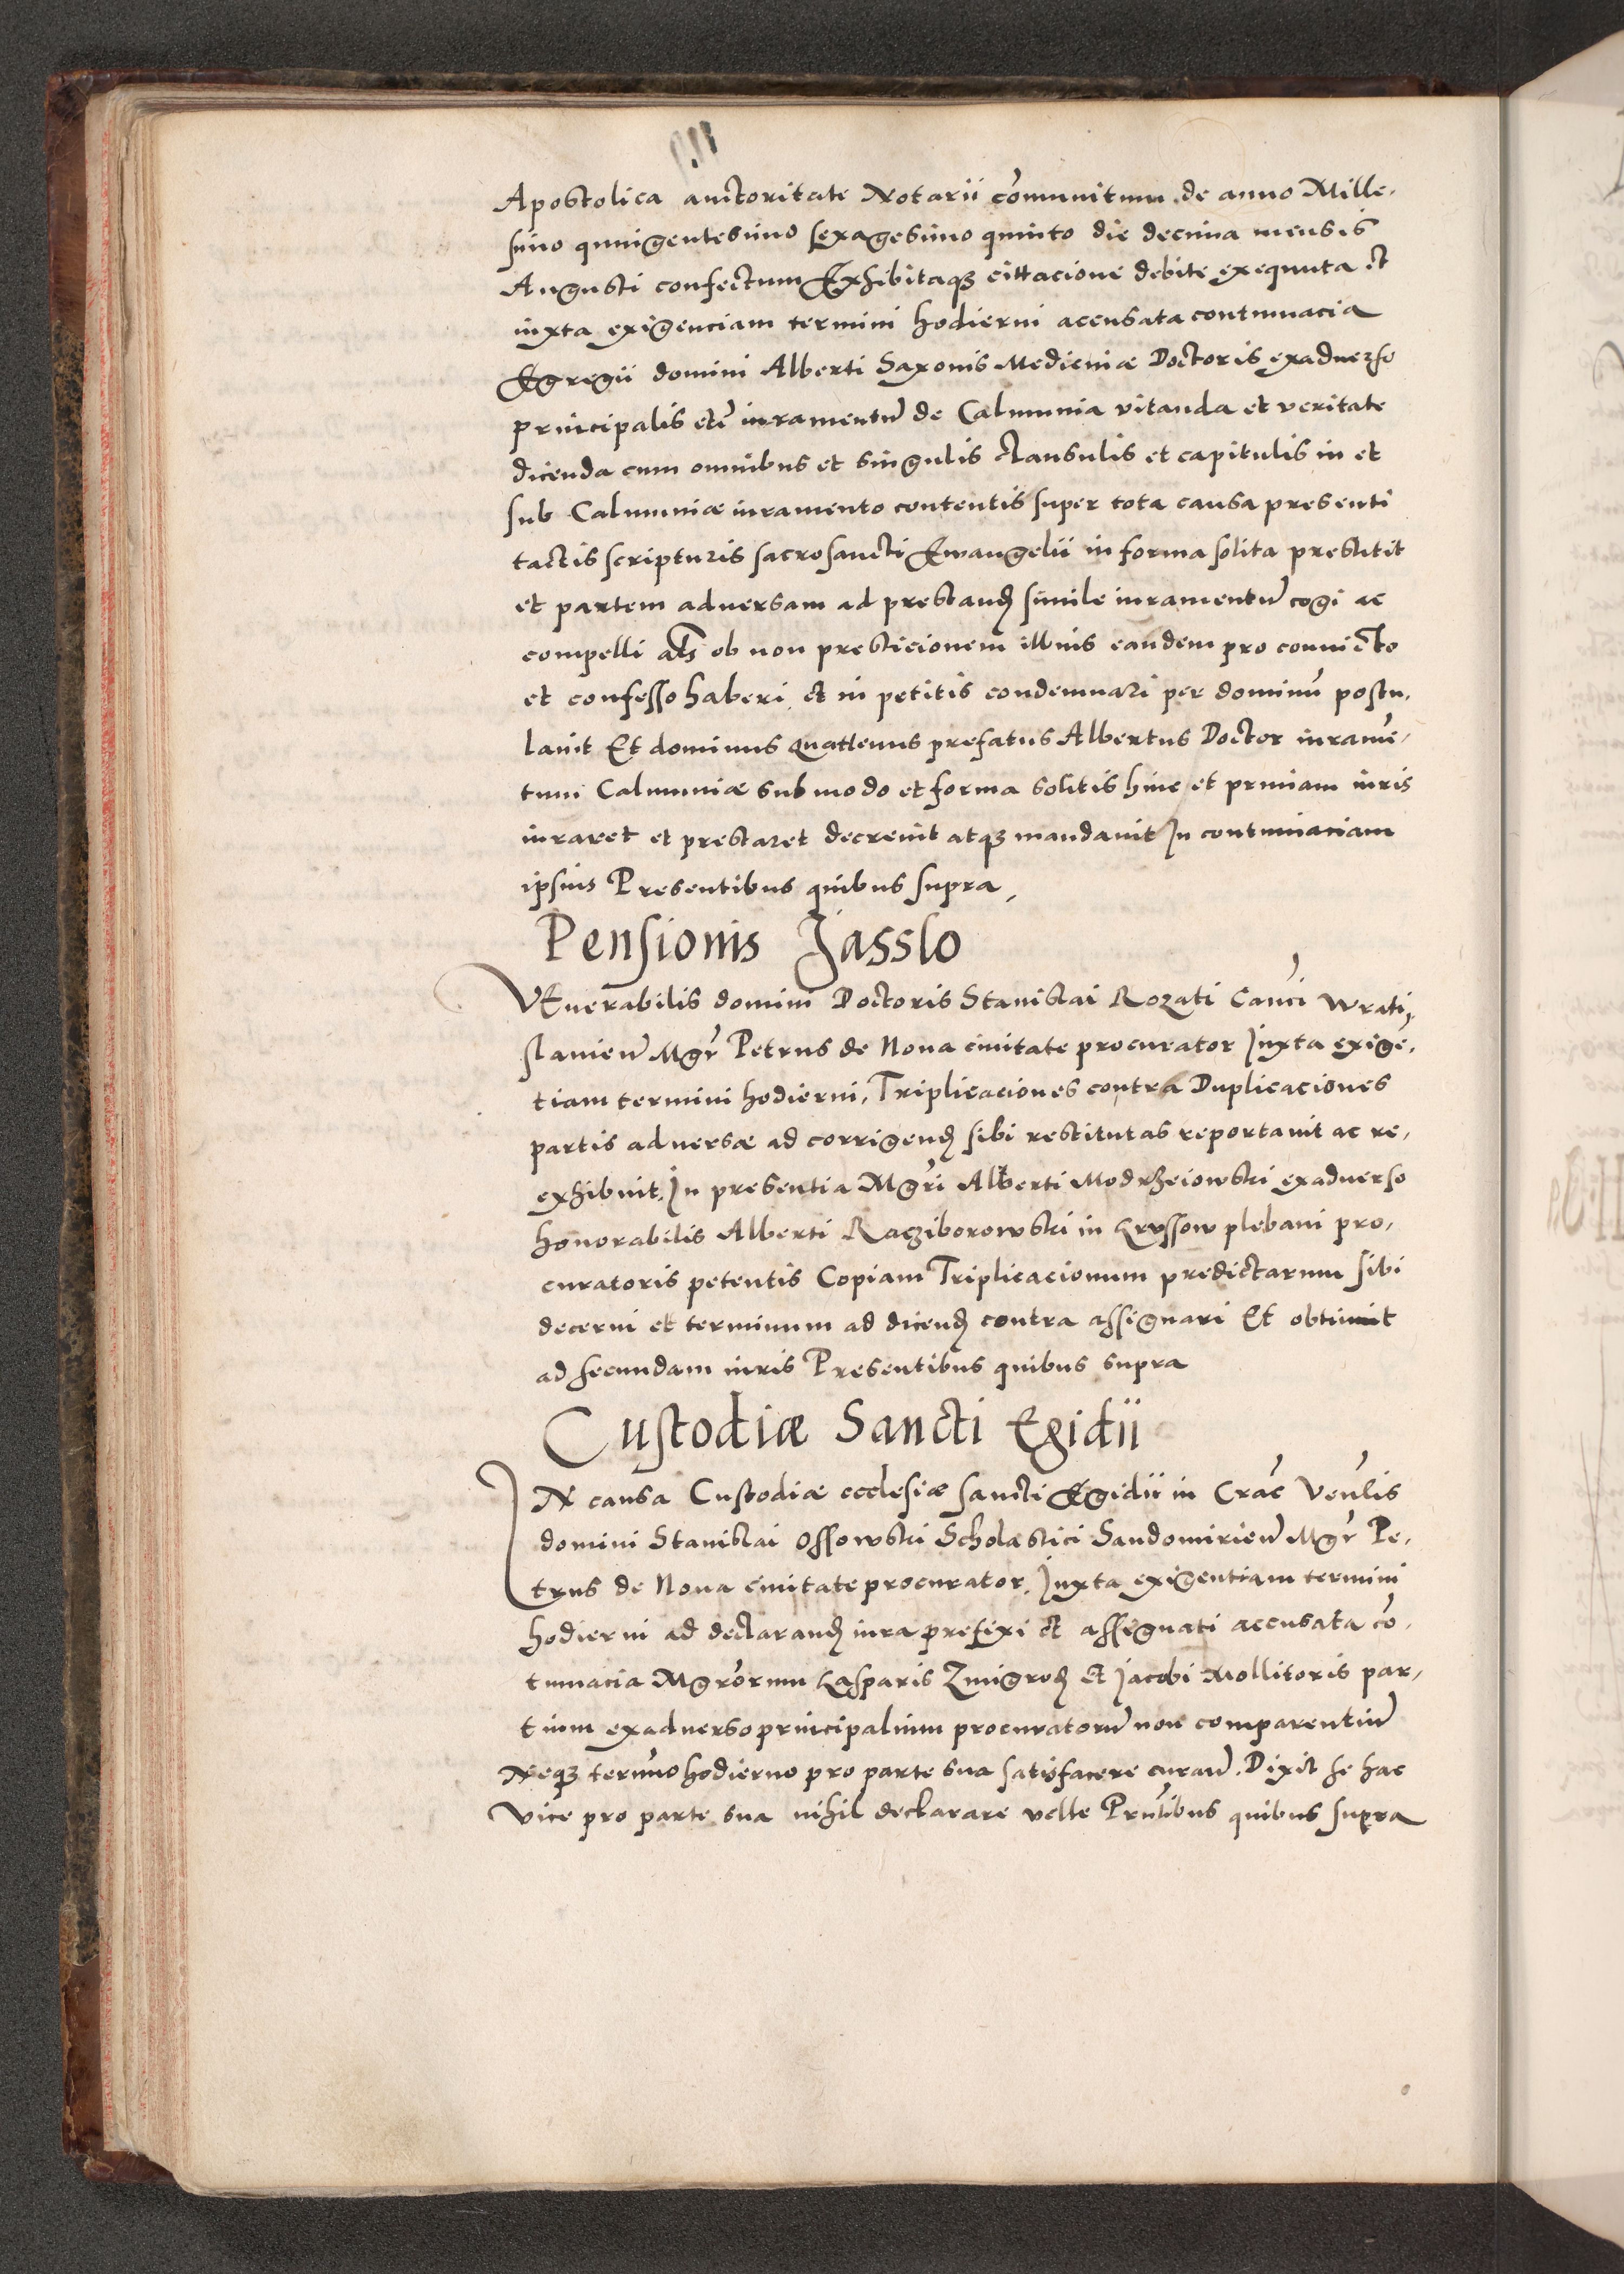 Apostolica auctoritate Notarii cōmunitum de anno Mille,
simo quingentesimo sexagesimo quinto die decima mensis
Augusti confectum Exhibitaqȝ cittacione debite exequuta et
iuxta exigenciam termini hodierni acensata contumacia
Egregii domini Alberti Saxonis Medicinæ Doctoris exaduerso
principalis etc̄ iuramentū de Calumnia vitanda et veritate
dicenda cum omnibus et singulis clausulis et capitulis in et
sub Calumniæ iuramento contentis super tota causa presenti
tactis scripturis sacrosancti Ewangelii in forma solita prestitit
et partem aduersam ad prestandꝭ simile iuramentū cogi ac
compelli als ob non presticionem illius eandem pro conuicto
et confesso haberi et in petitis condemnari per dominū postu,
lauit Et dominus quattenus prefatus Albertus Doctor iuramē,
tum Calumniæ sub modo et forma solitis hinc et primam iuris
iuraret et prestaret decreuit atqȝ mandauit In contumaciam
ipsius Presentibus quibus supra,
Pensionis Jasslo
VEnerabilis domini Doctoris Stanislai Rozati Canci Wrati,
slauieñ Mgr Petrus de Noua ciuitate procurator Juxta exigē,
tiam termini hodierni, Triplicaciones contra Duplicaciones
partis aduersæ ad corrigendꝭ sibi restitutas reportauit ac re,
exhibuit. In presentia Mgri Alberti Modrzeiowski exaduerso
honorabilis Alberti Racziborowski in Kryssow plebani pro,
curatoris petentis Copiam Triplicacionum predictarum sibi
decerni et terminum ad dicendꝭ contra assignari Et obtinuit
ad secundam iuris Presentibus quibus supra
Custodiæ Sancti Egidii
IN causa Custodiæ ecclesiæ sancti Egidii in Crac̄ Venlis
domini Stanislai Ossowski Scholastici Sandomirieñ Mgr Pe,
trus de Noua ciuitate procurator, Juxta exigentiam termini
hodierni ad declarandꝭ iura prefixi et assignati accusata cō,
tumacia Mgrorum Casparis Zmigrodꝭ Et Jacobi Mollitoris par,
tium exaduerso principalium procuratorū non comparentiū
Neqȝ termino hodierno pro parte sua satisfacere curañ. Dixit se hac
vice pro parte sua nihil declarare velle Prntibus quibus supra